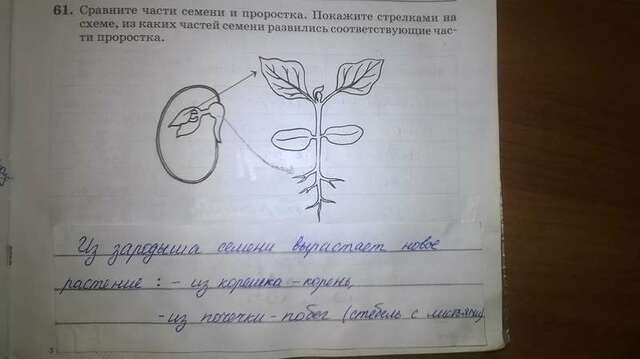 61. Сравните части семени и проростка. Покажите стрелками на
схеме, из каких частей семени развились соответствующие час-
ти проростка.
Из зародыша семени вырастает новое
растение : - из корешка - корень,
- из почечки - побег (стебель с листьями)